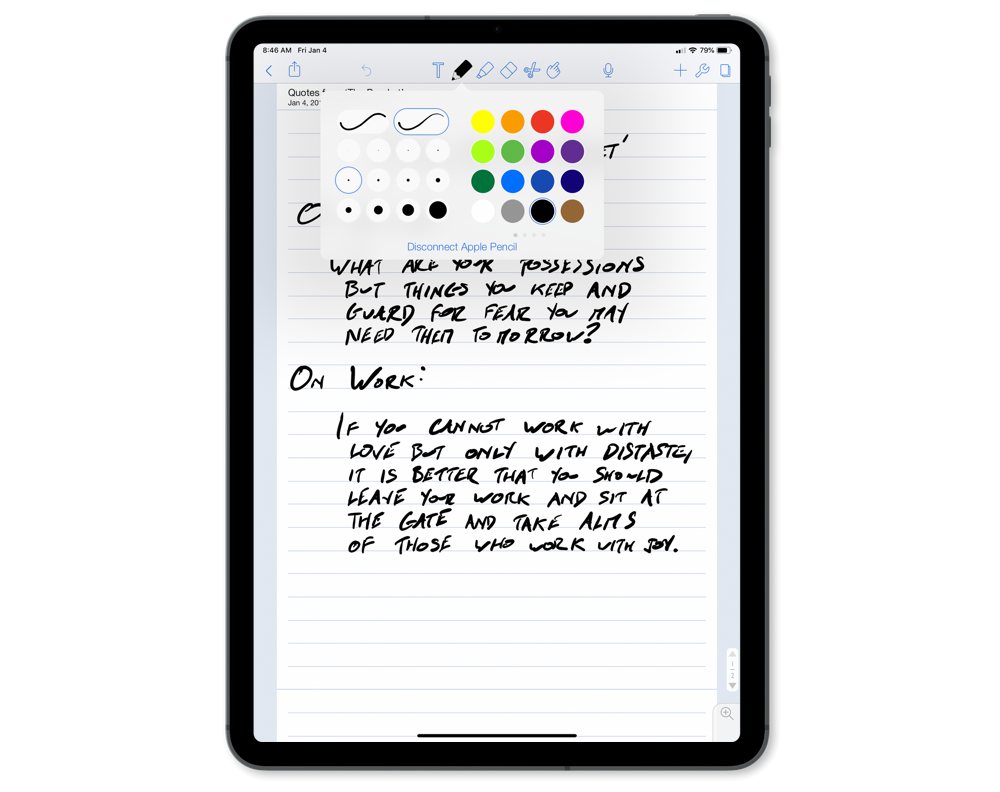 8:46 AM Fri Jan 4
79%
T
Quotes
Jan 4, 201
ET'
Disconnect Apple Pencil
WHAT ARE YOUR POSSESSIONS
BUT THINGS YOU KEEP AND
GUARD FOR FEAR YOU MAY
NEED THEM TOMORROW?
ON WORK:
IF YOU CANNOT WORK WITH
LOVE BUT ONLY WITH DISTASTE,
IT IS BETTER THAT YOU SHOULD
LEAVE YOUR WORK AND SIT AT
THE GATE AND TAKE ALMS
OF THOSE WHO WORK WITH JOY.
1
2